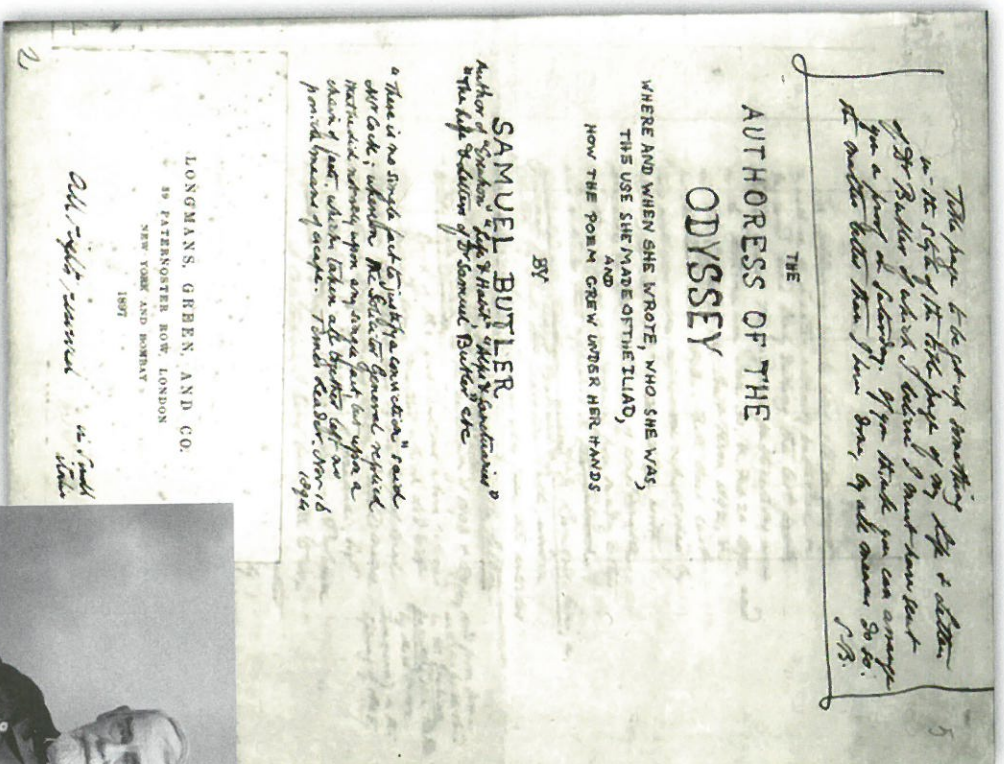 Title page to be got up something
in the style of the title page of my Life & Letters
of Dr Butler of which I believe I must have sent
you a proof on Saturday. If you think you can arrange
the matter better than I have done, by all means do so.
S.B.
5
THE
AUTHORESS OF THE
ODYSSEY
WHERE AND WHEN SHE WROTE, WHO SHE WAS,
THE USE SHE MADE OF THE ILIAD,
AND
HOW THE POEM GREW UNDER HER HANDS
BY
SAMUEL BUTLER
Author of "Erewhon" "Life & Habit" "Alps & Sanctuaries"
"The Life & Letters of Dr Samuel Butler" etc
"There is no single fact to justify a conviction" said
Mr Cock; whereon the Solicitor General replied
that he did not rely upon any single fact, but upon a
chain of facts, which taken all together left no
possible means of escape. Times Leader Nov. 16
1894
LONGMANS, GREEN, AND CO.
39 PATERNOSTER ROW, LONDON
NEW YORK AND BOMBAY
1897
All rights reserved
in small